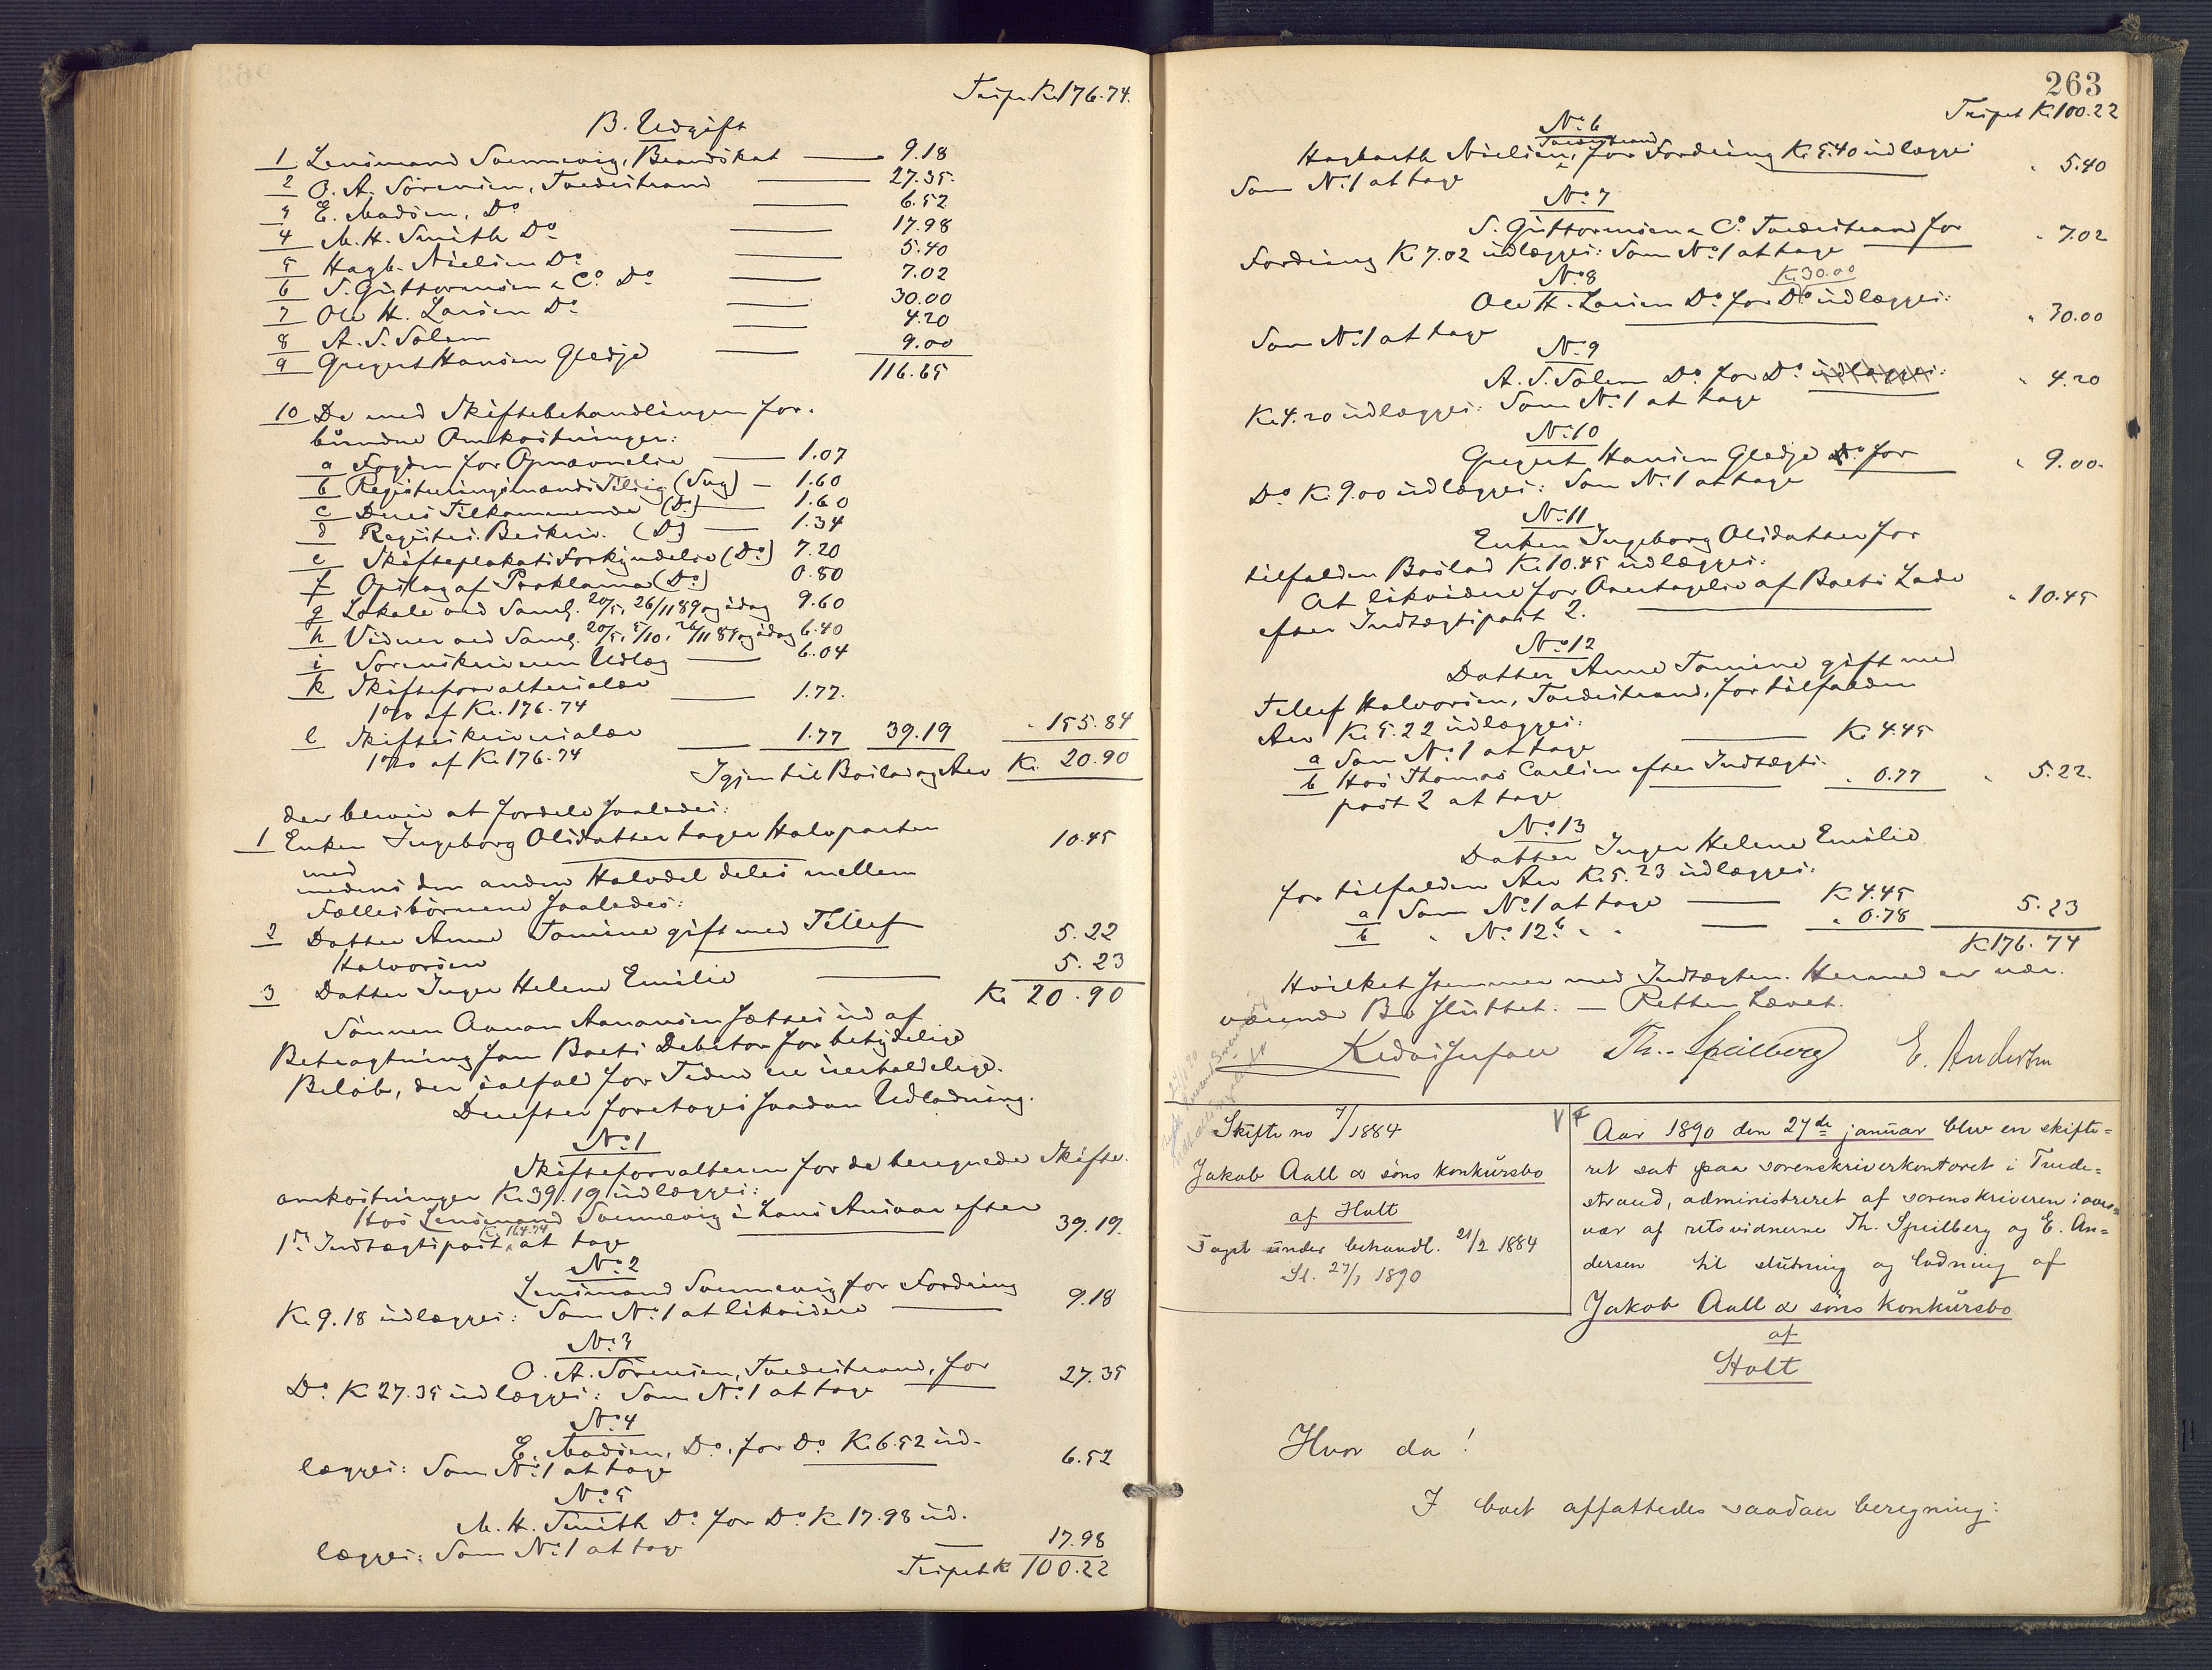 Trspt. Kr 176.74.
B. Udgift
1 Lensmand Svennevig, Brandskat — 9.18
2 O. A. Sörensen, Tvedestrand — 27.35.
3 E. Madsen, Do — 6.52
4 M. H. Smith Do — 17.98
5 Hagb. Nielsen Do — 5.40
6 S. Guttormsen & Co. Do — 7.02
7 Ole H. Larsen Do — 30.00
8 A. S. Solem — 4.20
9 Gregert Hansen Gledje — 9.00
116.65
10 De med Skiftebehandlingen for-
bundne Omkostninger:
a Fogden for Opnævnelse — 1.07
b Registreringsmænds Tilsig. (Svg) — 1.60
c Deres Tilkommende (Do) — 1.60
d Registr. Beskriv. (Do) — 1.34
e Skifteplakats Forkyndelse (Do) 7.20
f Opslag af Proklama (Do) 0.80
g Lokale ved Saml. 20/5, 26/11 89 og idag 9.60
h Vidner ved Saml. 20/5, 5/10, 26/11 89 og idag 6.40
i Sorenskriveren Udlæg — 6.04
k Skifteforvaltersalær
1% af Kr. 176.74 — 1.77.
l Skifteskriversalær
1% af Kr. 176.74 — 1.77 39.19 " 155.84
Igjen til Boslod og Arv Kr. 20.90
der bliver at fordele saaledes:
1 Enken Ingeborg Olsdatter tager Halvparten 10.45
med
medens den anden Halvdel deles mellem
Fællesbörnene saaledes:
2 Datter Anne Tomine gift med Tellef
Halvorsen 5.22
3 Datter Inger Helene Emilie — 5.23
Kr. 20.90
Sönnen Aanon Aanonsen sættes ud af
Betragtning som Boets Debitor for betydelige
Beløb, der ialfald for Tiden ere uerholdelige.
Derefter foretoges saadan Udlodning.
No. 1
Skifteforvalteren for de beregnede Skifte-
omkostninger Kr. 39.19 udlægges:
Hos Lensmand Svennevig i hans Ansvar efter
1ste Indtægtspost, Kr. 164.74 at tage 39.19.
No. 2
Lensmand Svennevig for Fordring
Kr. 9.18 udlægges: Som No. 1 at likvidere — 9.18
No. 3
O. A. Sörensen, Tvedestrand, for
Do. Kr 27.35 udlægges: Som No. 1 at tage 27.35
No. 4
E. Madsen, Do. for Do. Kr. 6.52 ud-
lægges: Som No. 1 at tage 6.52
No. 5
M. H. Smith Do for Do. Kr. 17.98 ud-
lægges: Som No. 1 at tage — 17.98
Trspt Kr 100.22
263
Trspt Kr. 100.22
No. 6
Tvedestrand
Hagbarth Nielsen, for Fordring Kr. 5.40 udlægges
Som No. 1 at tage " 5.40
No. 7
S. Guttormsen & Co. Tvedestrand for
Fordring Kr. 7.02 udlægges: Som No. 1 at tage " 7.02
No. 8
Kr. 30.00
Ole H. Larsen Do. for Do udlægges:
Som No. 1 at tage " 30.00
No. 9
A. S. Solem Do. for Do. udlægges:
Kr. 4.20 udlægges: Som No. 1 at tage " 4.20
No. 10
Gregert Hansen Gledje Do. for
Do. Kr. 9.00 udlægges: Som No. 1 at tage " 9.00.
No. 11
Enken Ingeborg Olsdatter for
tilfalden Boslod Kr. 10.45 udlægges:
At likvidere for Overtagelse af Boets Løse
efter Indtægtspost 2. " 10.45
No. 12
Datter Anne Tomine gift med
Tellef Halvorsen, Tvedestrand, for tilfalden
Arv Kr. 5.22 udlægges:
a Som No. 1 at tage — Kr 4.45
b Hos Thomas Carlsen efter Indtægts-
post 2 at tage " 0.77 " 5.22.
No. 13
Datter Inger Helene Emilie
for tilfalden Arv Kr. 5.23 udlægges:
a Som No. 1 at tage — Kr 4.45
b " No. 12 b " " — " 0.78 5.23
Kr 176.74
Hvilket stemmer med Indtægten. Hermed er nær-
værende Bo sluttet. — Retten hævet.
Th. Speilberg E. Andersen
Skifte no 7/1884
Jakob Aall & söns konkursbo
af Holt
Taget under behandl. 21/2 1884
Sl. 27/1 1890
Aar 1890 den 27de januar blev en skifte-
ret sat paa sorenskriverkontoret i Tvede-
strand, administreret af sorenskriveren i over-
vær af retsvidnerne Th. Speilberg og E. An-
dersen til slutning og lodning af
Jakob Aall & söns konkursbo
af
Holt
Hvor da!
I boet affattedes saadan beregning: